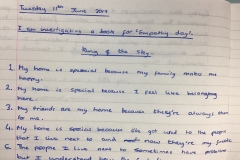 Tuesday 11th June 2019
I am investigating a book for "Empathy day".
King of the Sky.
1. My home is special because my family makes me
happy.
2. My home is special because I feel like belonging
here.
3. My friends are my home because they're always there
for me.
4. My home is special because I've got used to the people
that I live next to and now they're my friends
5. The people I live next to sometimes have problems
but I understand how